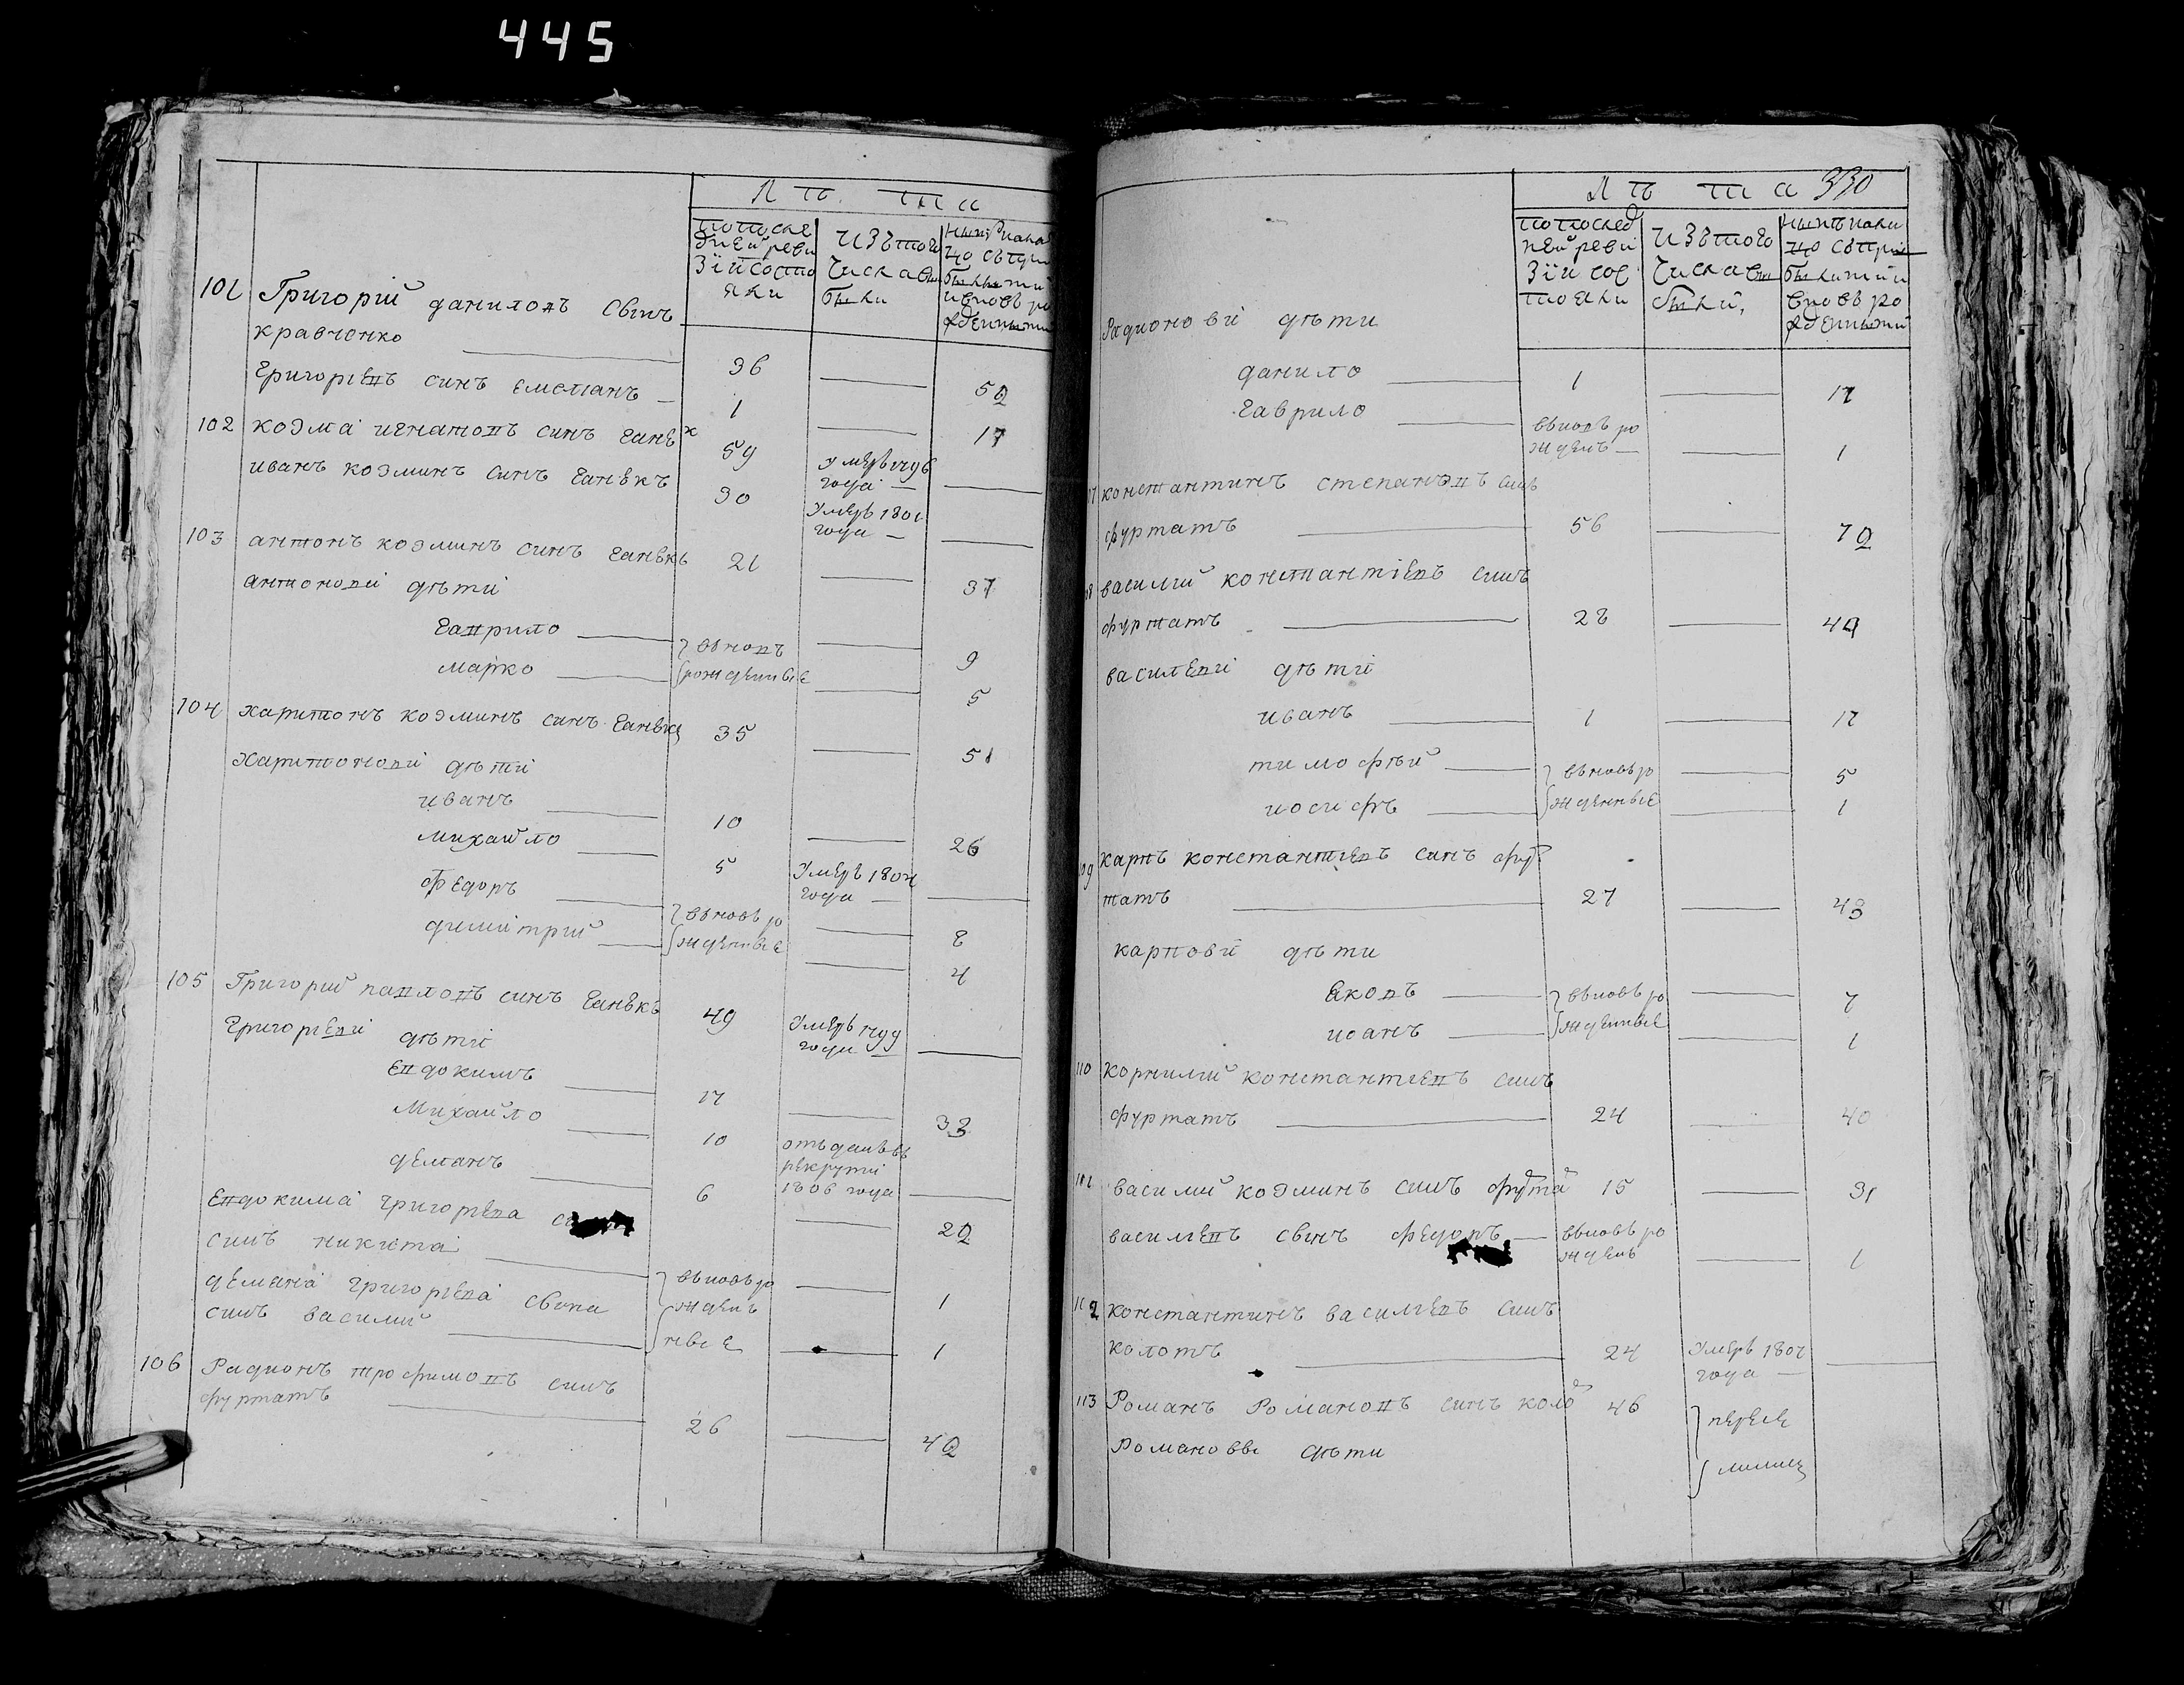 445
Лѣта
попосле
дней реви
зіи состо
яли
изътого
числа вы
были
нынѣ нали
цо съпри
былыми
ивновь ро
жденными
101 Григорій даниловъ сынъ
кравченко 36 52
григорьевъ синъ емелианъ 1 17
102 козма игнатовъ синъ ганък 59 умеръ 1796
года
иванъ козминъ синъ ганькъ 30 умеръ 1801
года
103 антонъ козминъ синъ ганькъ 21 37
антонови дѣти
гаврило вьновь 9
марко рожденные 5
104 харитонъ козминъ синъ ганькъ 35 51
харитонови дѣти
иванъ 10 26
михайло 5 умеръ 1804
года
федоръ вьновь ро 8
димитрий жденные 4
105 Григорий павловъ синъ ганькъ 49 умеръ 1799
года
григорьеви дѣти
евдокимъ 17 33
михайло 10 отъданъ въ
рекруты
1806 года
демянъ 6 22
евдокима григорьева
синъ никита вьновь ро 1
демяна григорьева сына жден
синъ василий ные 1
106 Радионъ трофимовъ синъ
фурматъ 26 42
330
Лѣта
попослед
ней реви
зіи сос
тояли
изътого
числа вы
были
нынѣ нали
цо съпри
былыми
вновь ро
жденными
Радионови дѣти
данило 1 17
гаврило вьновь ро
жденъ 1
константинъ степановъ синъ
фурматъ 56 72
василий константиевъ синъ
фурматъ 28 44
василеви дѣти
иванъ 1 17
тимофѣй вьновь ро 5
иосифъ жденные 1
карпъ константиевъ синъ фур
матъ 27 43
карпови дѣти
яковъ вьновь ро 7
иоанъ жденные 1
110 корнилий константиевъ синъ
фурматъ 24 40
111 василий козминъ синъ 15 31
василиевъ сынъ федоръ вьновь ро
жденъ 1
112 константинъ василиевъ синъ
коломъ 24 умеръ 1801
года
113 Романъ Романовъ синъ коло 46 переве
Романовы дѣти